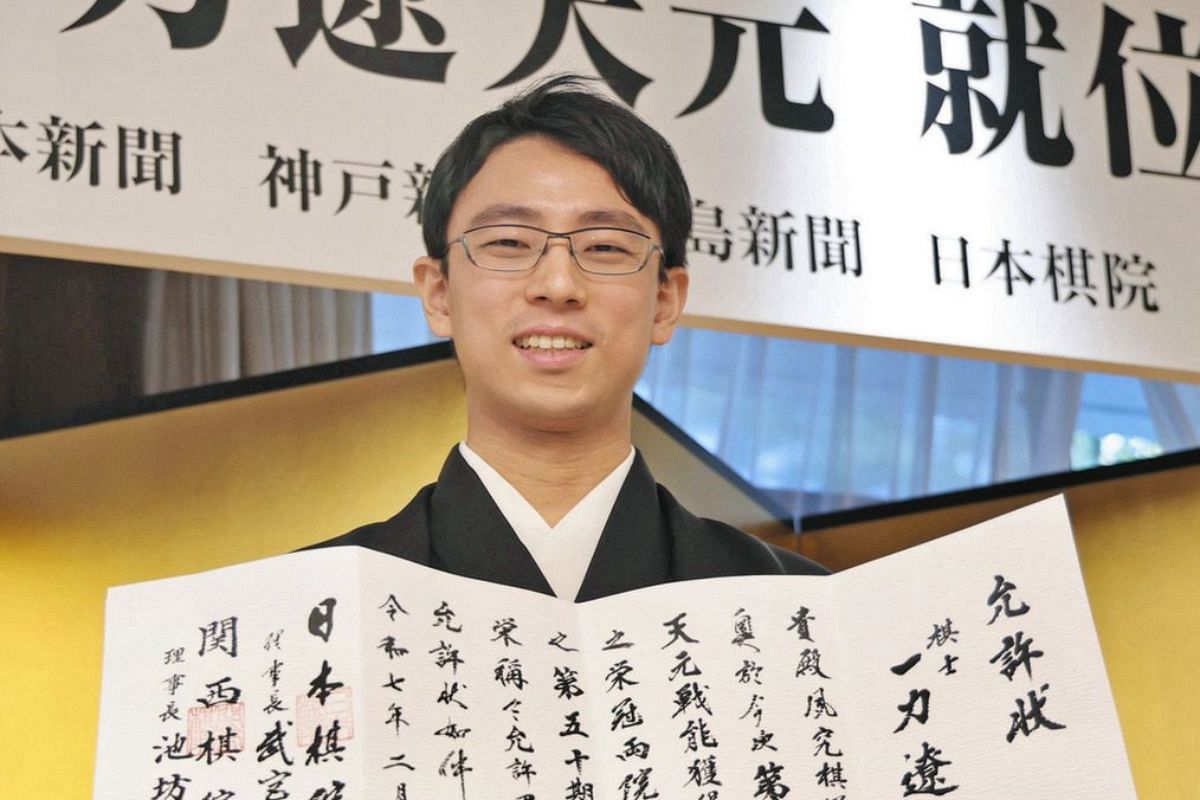 力遼天元 就位
本新聞 神戸新 島新聞 日本棋院
允許状
棋士 一力遼
貴殿夙究棋
奥於今次第
天元戦能獲得
之栄冠両院
之第五十期
栄称允許
允許状如件
令和七年二月
日本棋院
理事長 武宮
関西棋院
理事長 池坊